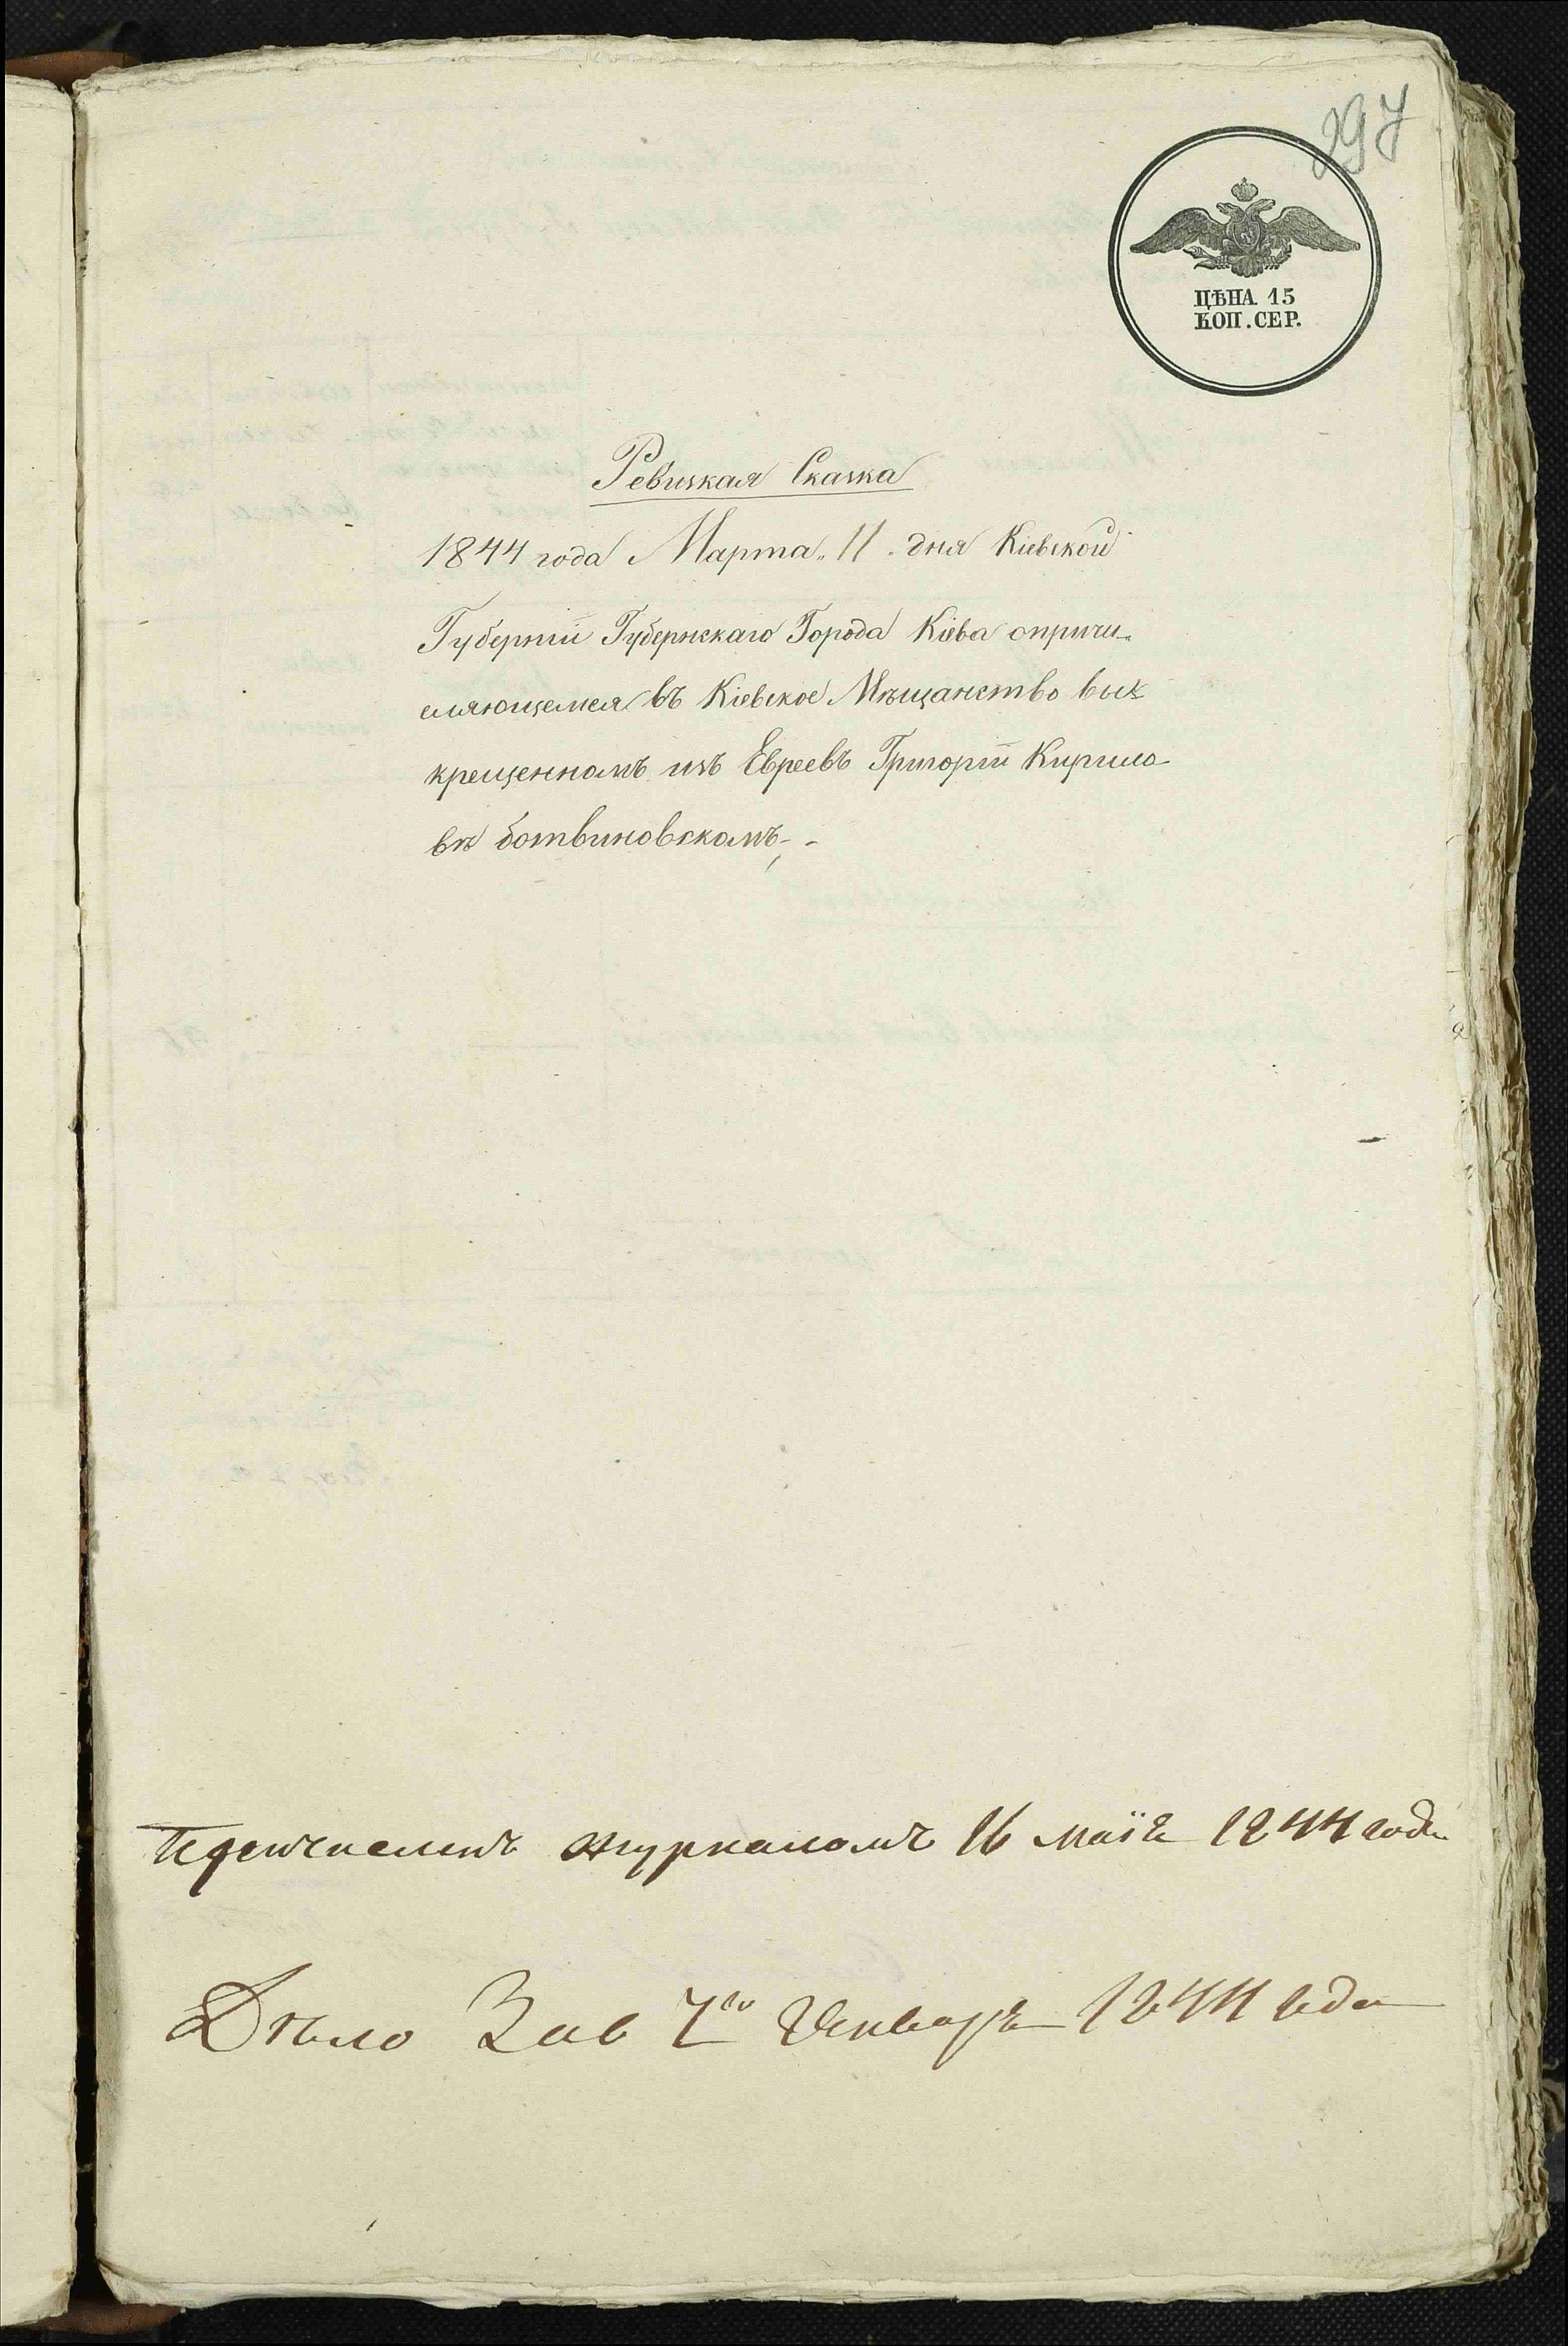 297
ЦѢНА 15
КОП. СЕР.
Ревизкая Сказка
1844 года Марта 11 дня Кіевской
Губерніи Губернскаго Города Кіева опричи-
сляющемся въ Кіевское Мѣщанство вы-
крещенномъ изъ Евреевъ Григоріи Кирило-
вѣ ботвиновскомъ
журналомъ 16 маія 1844 года
Дѣло 7го Января 1844 года